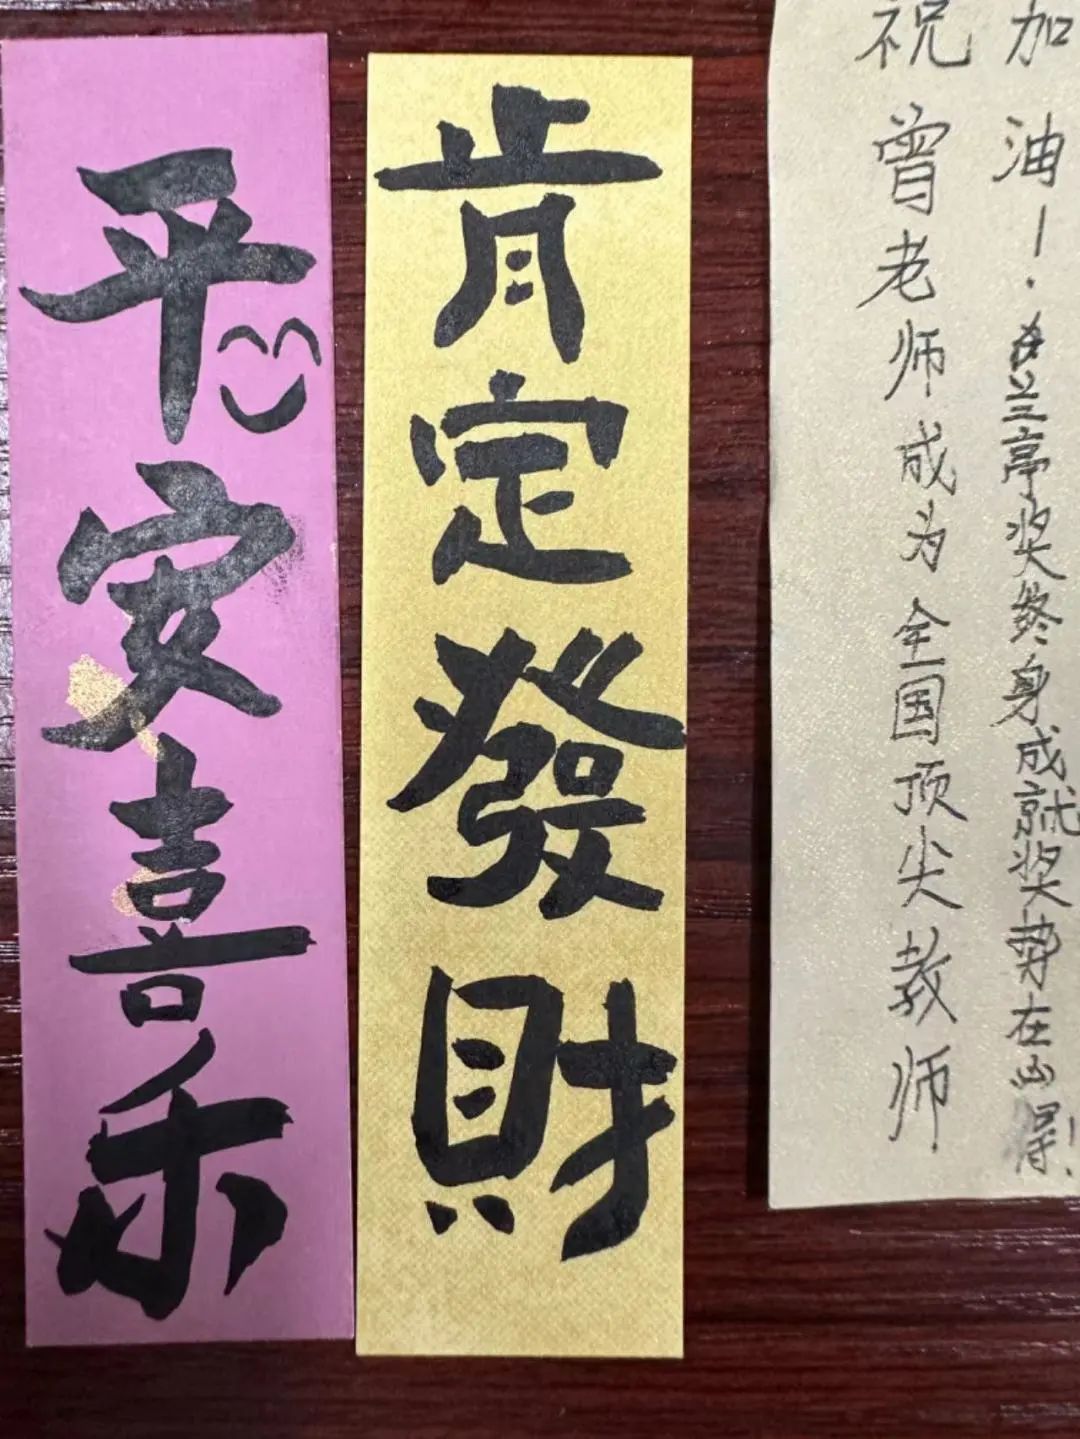 加油！兰亭奖终身成就奖势在必得！
祝曾老师成为全国顶尖教师
肯定發財
平安喜乐